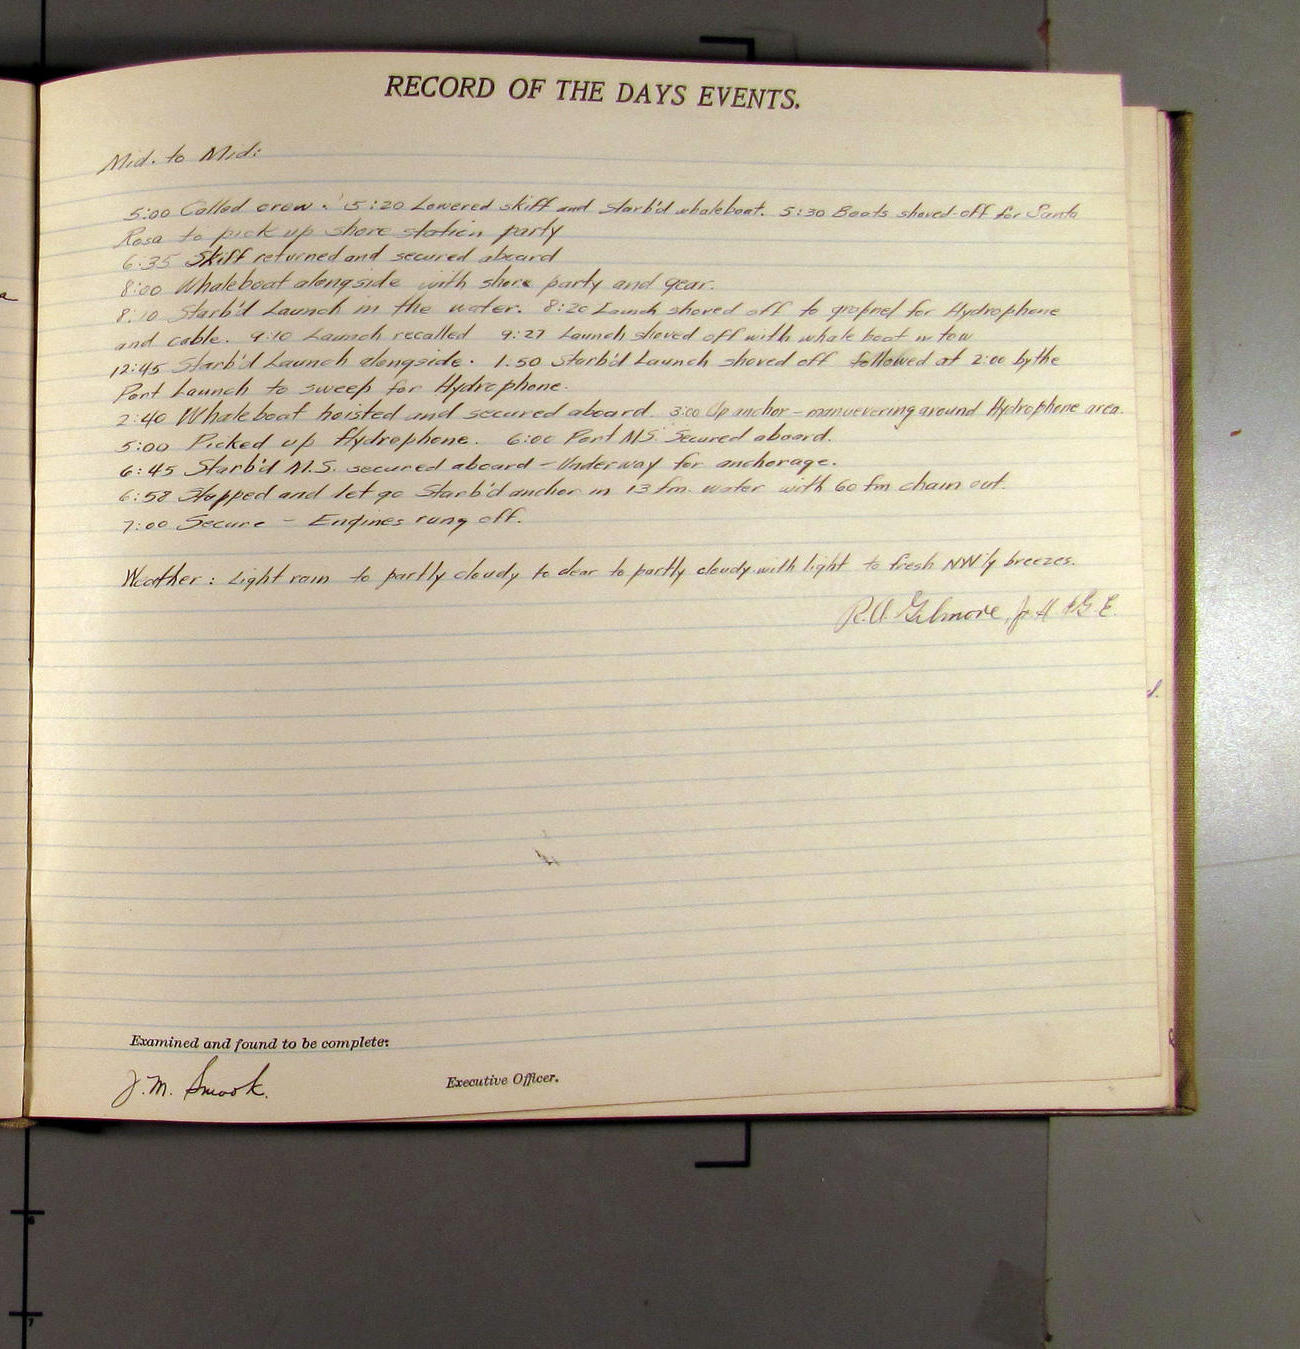 RECORD OF THE DAYS EVENTS.
Mid. to Mid:
5:00 Called crew. 5:20 Lowered skiff and Starb'd whaleboat. 5:30 Boats shoved-off for Santa
Rosa to pick up shore station party
6:35 Skiff returned and secured aboard
8:00 Whaleboat alongside with shore party and gear.
8:10 Starb'd Launch in the water. 8:20 Launch shoved off to grapnel for Hydrophone
and cable. 9:10 Launch recalled 9:27 Launch shoved off with whale boat in tow
12:45 Starb'd Launch alongside. 1:50 Starb'd Launch shoved off followed at 2:00 by the
Port Launch to sweep for Hydrophone.
2:40 Whaleboat hoisted and secured aboard. 3:00 Up anchor - manuevering around Hydrophone area.
5:00 Picked up Hydrophone. 6:00 Port M.S. Secured aboard.
6:45 Starb'd M.S. secured aboard - Underway for anchorage.
6:58 Stopped and let go Starb'd anchor in 13 fm. water with 60 fm chain out.
7:00 Secure - Engines rung off.
Weather: Light rain to partly cloudy to clear to partly cloudy with light to fresh NW'ly breezes.
R.A. Gilmore, Jr. H. & G. E.
Examined and found to be complete:
J.M. Smook.
Executive Officer.